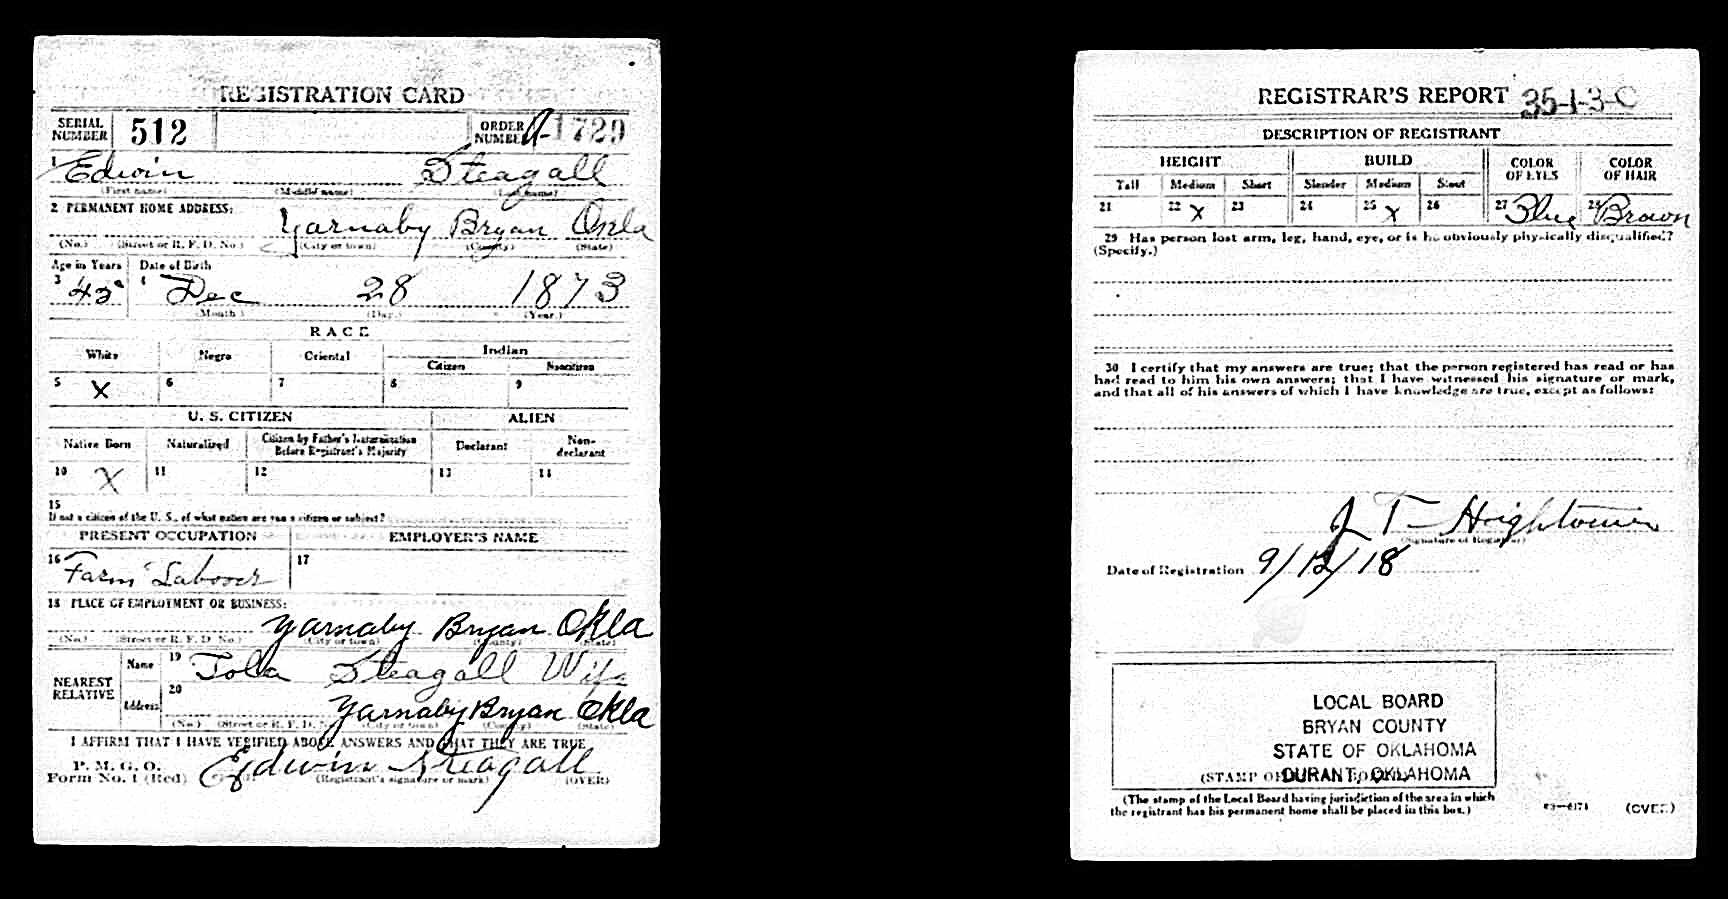 REGISTRATION CARD
SERIAL NUMBER 512 ORDER NUMBER A-1729
1 Edwin Steagall
(First name) (Middle name) (Last name)
2 PERMANENT HOME ADDRESS:
Yarnaby Bryan Okla
(No.) (Street or R. F. D. No.) (City or town) (County) (State)
Age in Years Date of Birth
3 45 4 Dec 28 1873
(Month) (Day) (Year.)
RACE
White Negro Oriental Indian
Citizen Noncitizen
5 X 6 7 8 9
U. S. CITIZEN ALIEN
Native Born Naturalized Citizen by Father's Naturalization Before Registrant's Majority Declarant Non-declarant
10 X 11 12 13 14
15
If not a citizen of the U. S., of what nation are you a citizen or subject?
PRESENT OCCUPATION EMPLOYER'S NAME
16 Farm Laborer 17
18 PLACE OF EMPLOYMENT OR BUSINESS:
Yarnaby Bryan Okla
(No.) (Street or R. F. D. No.) (City or town) (County) (State)
NEAREST RELATIVE Name 19 Tola Steagall Wife
Address 20 Yarnaby Bryan Okla
(No.) (Street or R. F. D. No.) (City or town) (County) (State)
I AFFIRM THAT I HAVE VERIFIED ABOVE ANSWERS AND THAT THEY ARE TRUE
P. M. G. O.
Form No. 1 (Red) Edwin Steagall
(Registrant's signature or mark) (OVER)
REGISTRAR'S REPORT 35-1-3-C
DESCRIPTION OF REGISTRANT
HEIGHT BUILD COLOR OF EYES COLOR OF HAIR
Tall Medium Short Slender Medium Stout
21 22 X 23 24 25 X 26 27 Blue 28 Brown
29 Has person lost arm, leg, hand, eye, or is he obviously physically disqualified?
(Specify.)
30 I certify that my answers are true; that the person registered has read or has
had read to him his own answers; that I have witnessed his signature or mark,
and that all of his answers of which I have knowledge are true, except as follows:
J T Hightower
(Signature of Registrar)
Date of Registration 9/12/18
LOCAL BOARD
BRYAN COUNTY
STATE OF OKLAHOMA
DURANT, OKLAHOMA
(STAMP OF LOCAL BOARD)
(The stamp of the Local Board having jurisdiction of the area in which
the registrant has his permanent home shall be placed in this box.)
03—6171 (OVER)